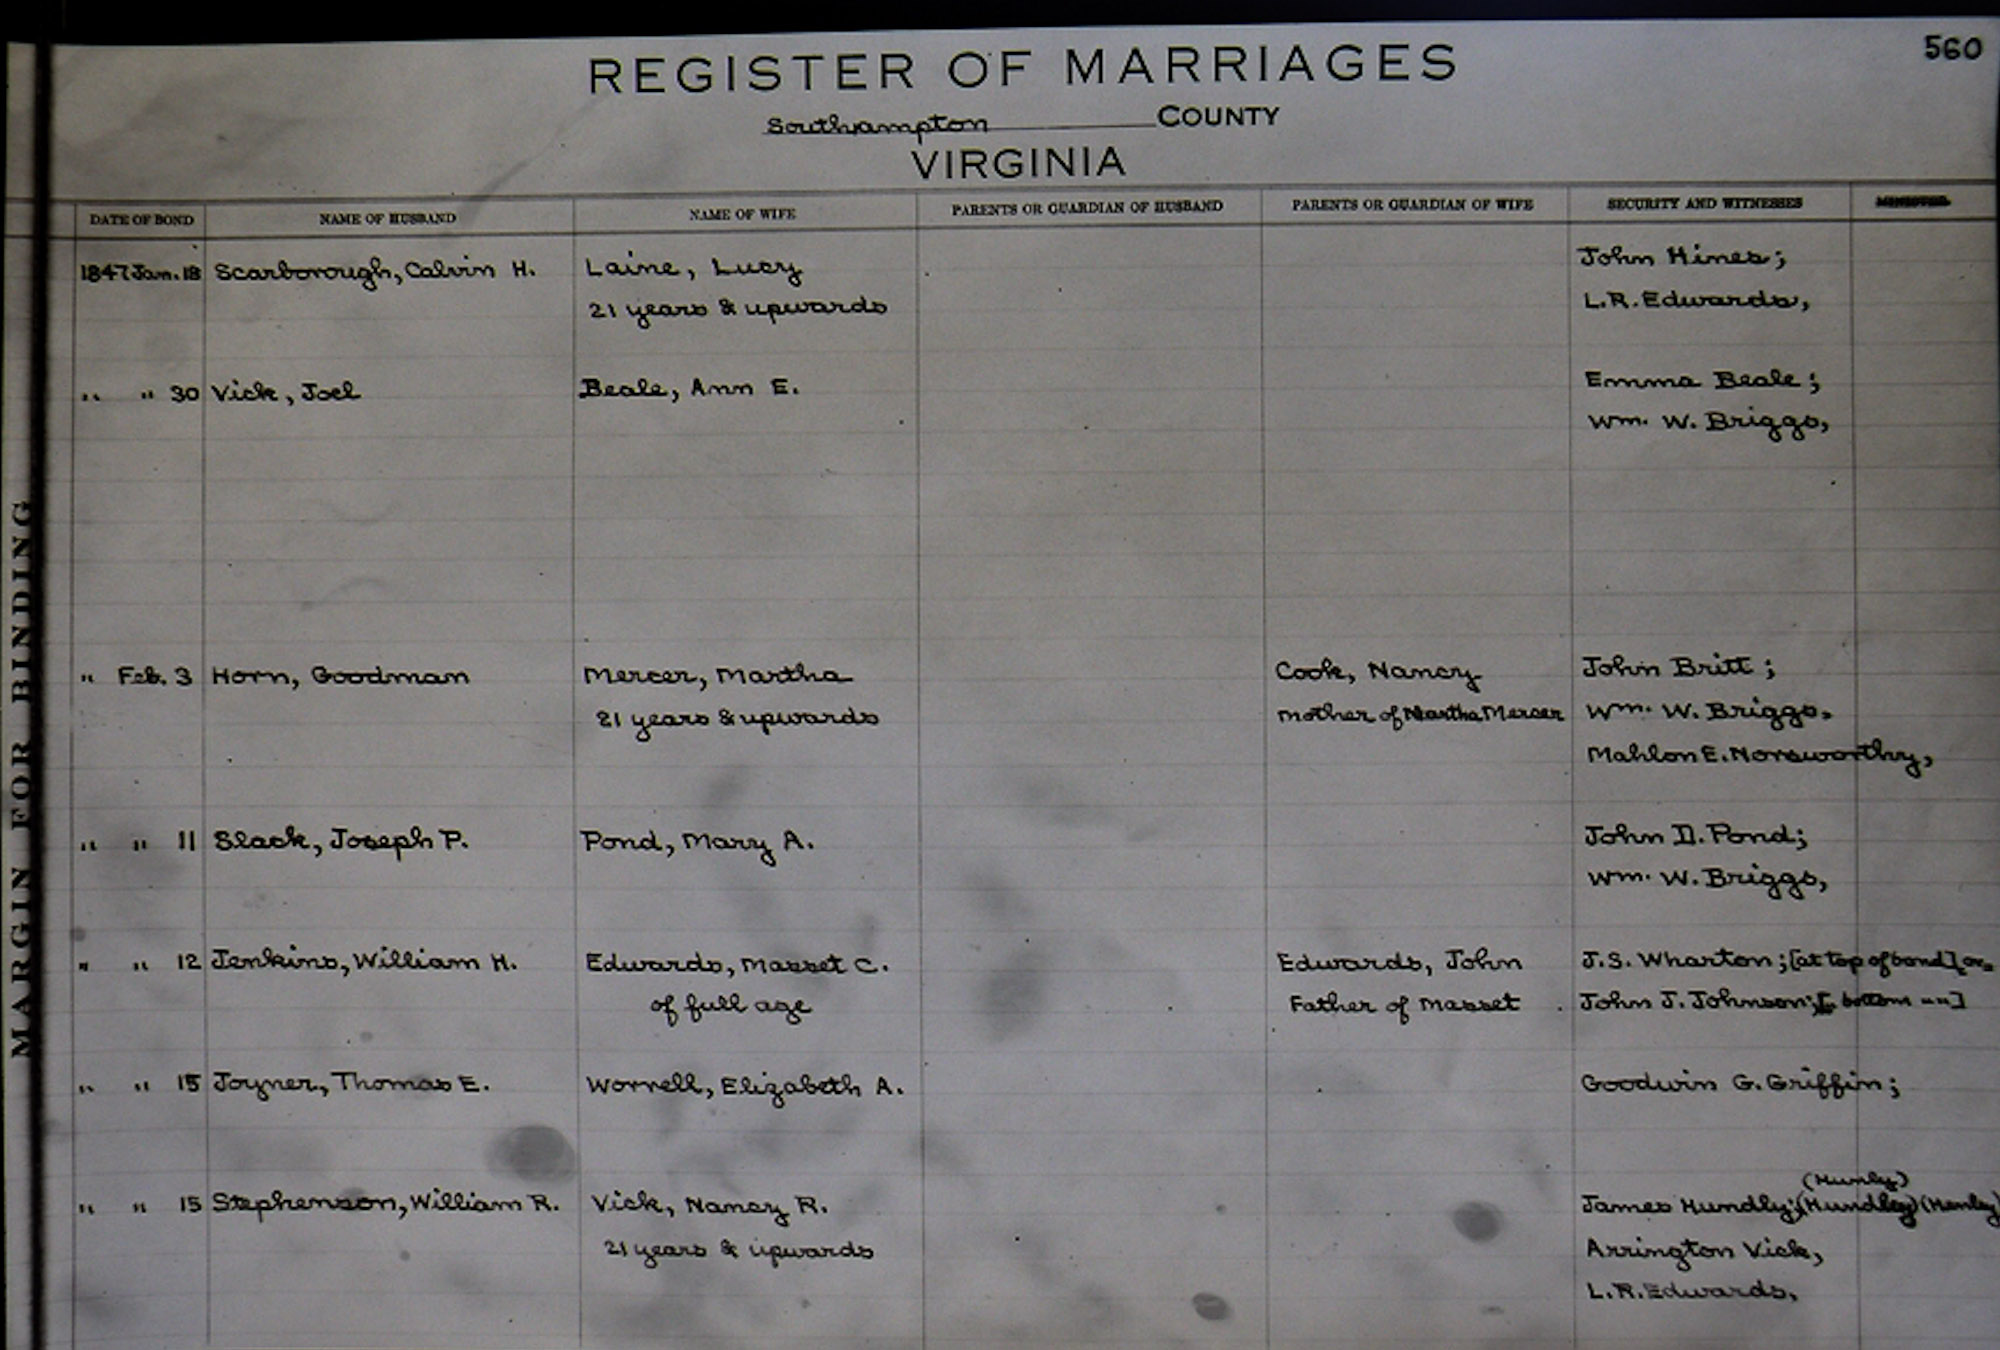 560
REGISTER OF MARRIAGES
Southampton COUNTY
VIRGINIA
DATE OF BOND NAME OF HUSBAND NAME OF WIFE PARENTS OR GUARDIAN OF HUSBAND PARENTS OR GUARDIAN OF WIFE SECURITY AND WITNESSES MINISTER
1847 Jan. 18 Scarborough, Calvin H. Laine, Lucy John Hines;
21 years & upwards L.R. Edwards,
" " 30 Vick, Joel Beale, Ann E. Emma Beale;
Wm. W. Briggs,
" Feb. 3 Horn, Goodman Mercer, Martha Cook, Nancy John Britt;
21 years & upwards mother of Martha Mercer Wm. W. Briggs,
Mahlon E. Norsworthy,
" " 11 Slack, Joseph P. Pond, Mary A. John D. Pond;
Wm. W. Briggs,
" " 12 Jenkins, William H. Edwards, Masset C. Edwards, John J.S. Wharton; [at top of bond] or
of full age Father of Masset John J. Johnson; [" bottom " "]
" " 15 Joyner, Thomas E. Worrell, Elizabeth A. Goodwin G. Griffin;
(Hunly)
" " 15 Stephenson, William R. Vick, Nancy R. James Hundly; (Hundley) (Henley)
21 years & upwards Arrington Vick,
L.R. Edwards,
MARGIN FOR BINDING